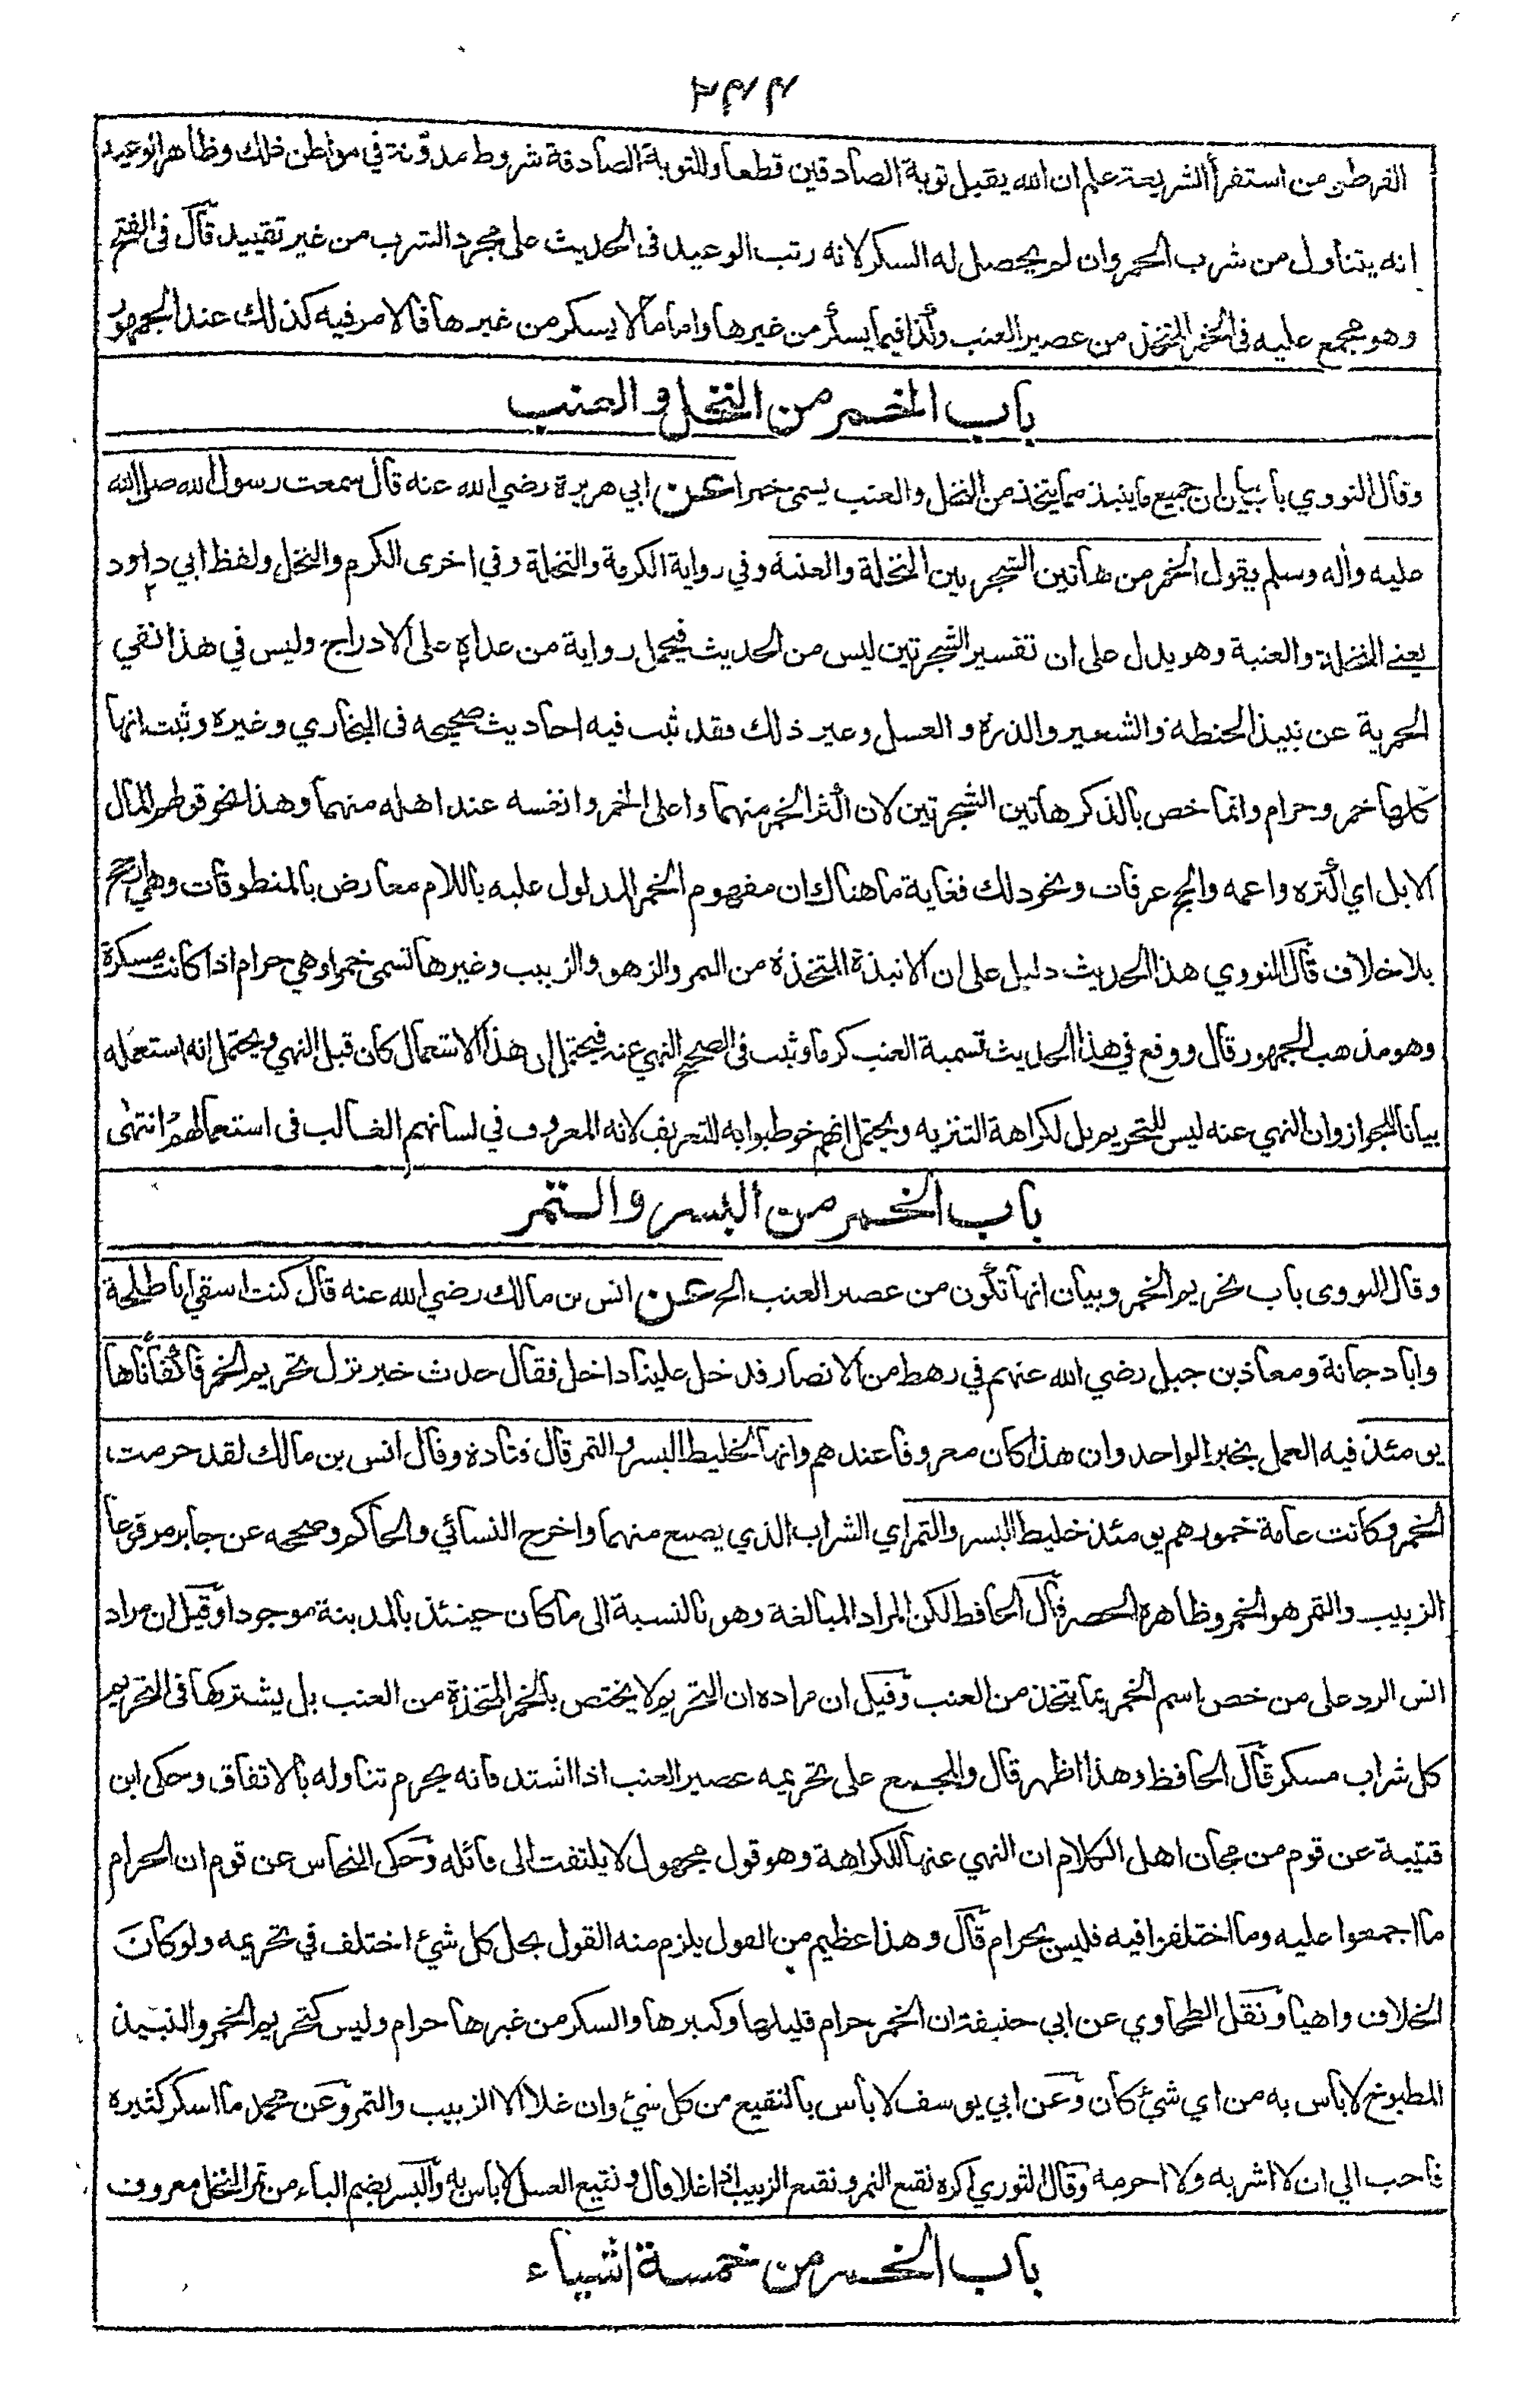 ٢٣٣
القرطبي من استقرأ الشريعة علم ان الله يقبل توبة الصادقين قطعا وللتوبة الصادقة شروط مدونة في مواطن ذلك وظاهر الوعيد
انه يتناول من شرب الخمر وان لم يحصل له السكر لانه رتب الوعيد في الحديث على مجرد الشرب من غير تقييد قال في الفتح
وهو مجمع عليه في الخمر المتخذ من عصير العنب وكذا فيما يسكر من غيرها واما ما لا يسكر من غيرها فالامر فيه كذلك عند الجمهور
باب الخمر من النخل والعنب
وقال النووي باب بيان ان جميع ما ينبذ مما يتخذ من النخل والعنب يسمى خمرا عن ابي هريرة رضي الله عنه قال سمعت رسول الله صلى الله
عليه واله وسلم يقول الخمر من هاتين الشجرتين النخلة والعنبة وفي رواية الكرمة والنخلة وفي اخرى الكرم والنخل ولفظ ابي داود
يعني النخلة والعنبة وهو يدل على ان تفسير الشجرتين ليس من الحديث فيحمل رواية من عداه على الادراج وليس في هذا نفي
الخمرية عن نبيذ الحنطة والشعير والذرة والعسل وغير ذلك فقد ثبت فيه احاديث صحيحه في البخاري وغيره وثبت انها
كلها خمر وحرام وانما خص بالذكر هاتين الشجرتين لان اكثر الخمر منهما واعلى الخمر وانفسه عند اهله منهما وهذا نحو قولهم المال
الابل اي اكثره واعمه والحج عرفات ونحو ذلك فغاية ما هناك ان مفهوم الخمر المدلول عليه باللام معارض بالمنطوقات وهي ارجح
بلا خلاف قال النووي هذا الحديث دليل على ان الانبذة المتخذة من التمر والزهو والزبيب وغيرها تسمى خمرا وهي حرام اذا كانت مسكرة
وهو مذهب الجمهور قال ووقع في هذا الحديث تسمية العنب كرما وثبت في الصحيح النهي عنه فيحتمل ان هذا الاستعمال كان قبل النهي ويحتمل انه استعمله
بيانا للجواز وان النهي عنه ليس للتحريم بل لكراهة التنزيه ويحتمل انهم خوطبوا به للتعريف لانه المعروف في لسانهم الغالب في استعمالهم انتهى
باب الخمر من البسر والتمر
وقال النووي باب تحريم الخمر وبيان انها تكون من عصير العنب الخ عن انس بن مالك رضي الله عنه قال كنت اسقي ابا طلحة
وابا دجانة ومعاذ بن جبل رضي الله عنهم في رهط من الانصار فدخل علينا داخل فقال حدث خبر نزل تحريم الخمر فاكفأناها
يومئذ فيه العمل بخبر الواحد وان هذا كان معروفا عندهم وانها لخليط البسر والتمر قال قتادة وقال انس بن مالك لقد حرمت
الخمر وكانت عامة خمورهم يومئذ خليط البسر والتمر اي الشراب الذي يصنع منهما واخرج النسائي والحاكم وصححه عن جابر مرفوعا
الزبيب والتمر هو الخمر وظاهره الحصر قال الحافظ لكن المراد المبالغة وهو بالنسبة الى ما كان حينئذ بالمدينة موجودا وقيل ان مراد
انس الرد على من خص اسم الخمر بما يتخذ من العنب وقيل ان مراده ان التحريم لا يختص بالخمر المتخذة من العنب بل يشتركها في التحريم
كل شراب مسكر قال الحافظ وهذا اظهر قال والمجمع على تحريمه عصير العنب اذا اشتد فانه يحرم تناوله بالاتفاق وحكى ابن
قتيبة عن قوم من مجان اهل الكلام ان النهي عنها للكراهة وهو قول مجهول لا يلتفت الى قائله وحكى النحاس عن قوم ان الحرام
ما اجمعوا عليه وما اختلفوا فيه فليس بحرام قال وهذا عظيم من القول يلزم منه القول بحل كل شئ اختلف في تحريمه ولو كان
الخلاف واهيا ونقل الطحاوي عن ابي حنيفة ان الخمر حرام قليلها وكثيرها والسكر من غيرها حرام وليس كتحريم الخمر والنبيذ
المطبوخ لا بأس به من اي شئ كان وعن ابي يوسف لا بأس بالنقيع من كل شئ وان غلا الا الزبيب والتمر وعن محمد ما اسكر كثيره
فاحب الي ان لا اشربه ولا احرمه وقال الثوري اكره نقيع التمر ونقيع الزبيب اذا غلا وقال ونقيع العسل لا بأس به والبسر بضم الباء من تمر النخل معروف
باب الخمر من خمسة اشياء